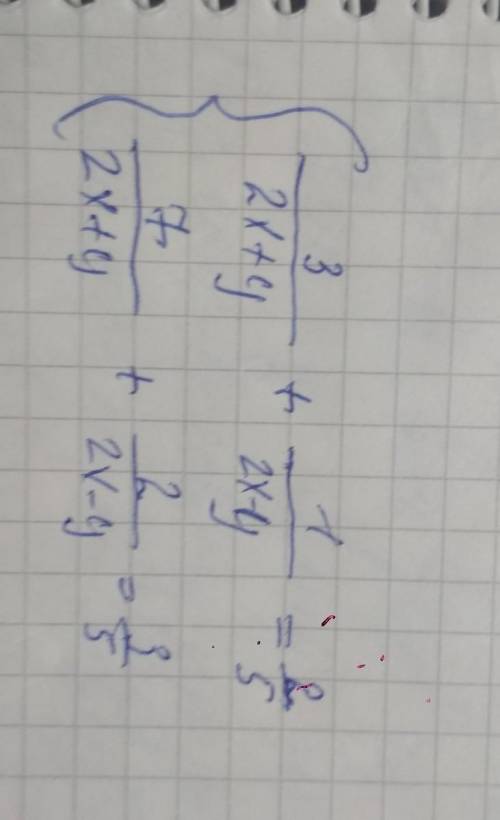 3/(2x+y) + 1/(2x-y) = /5
7/(2x+y) + 2/(2x-y) = /5